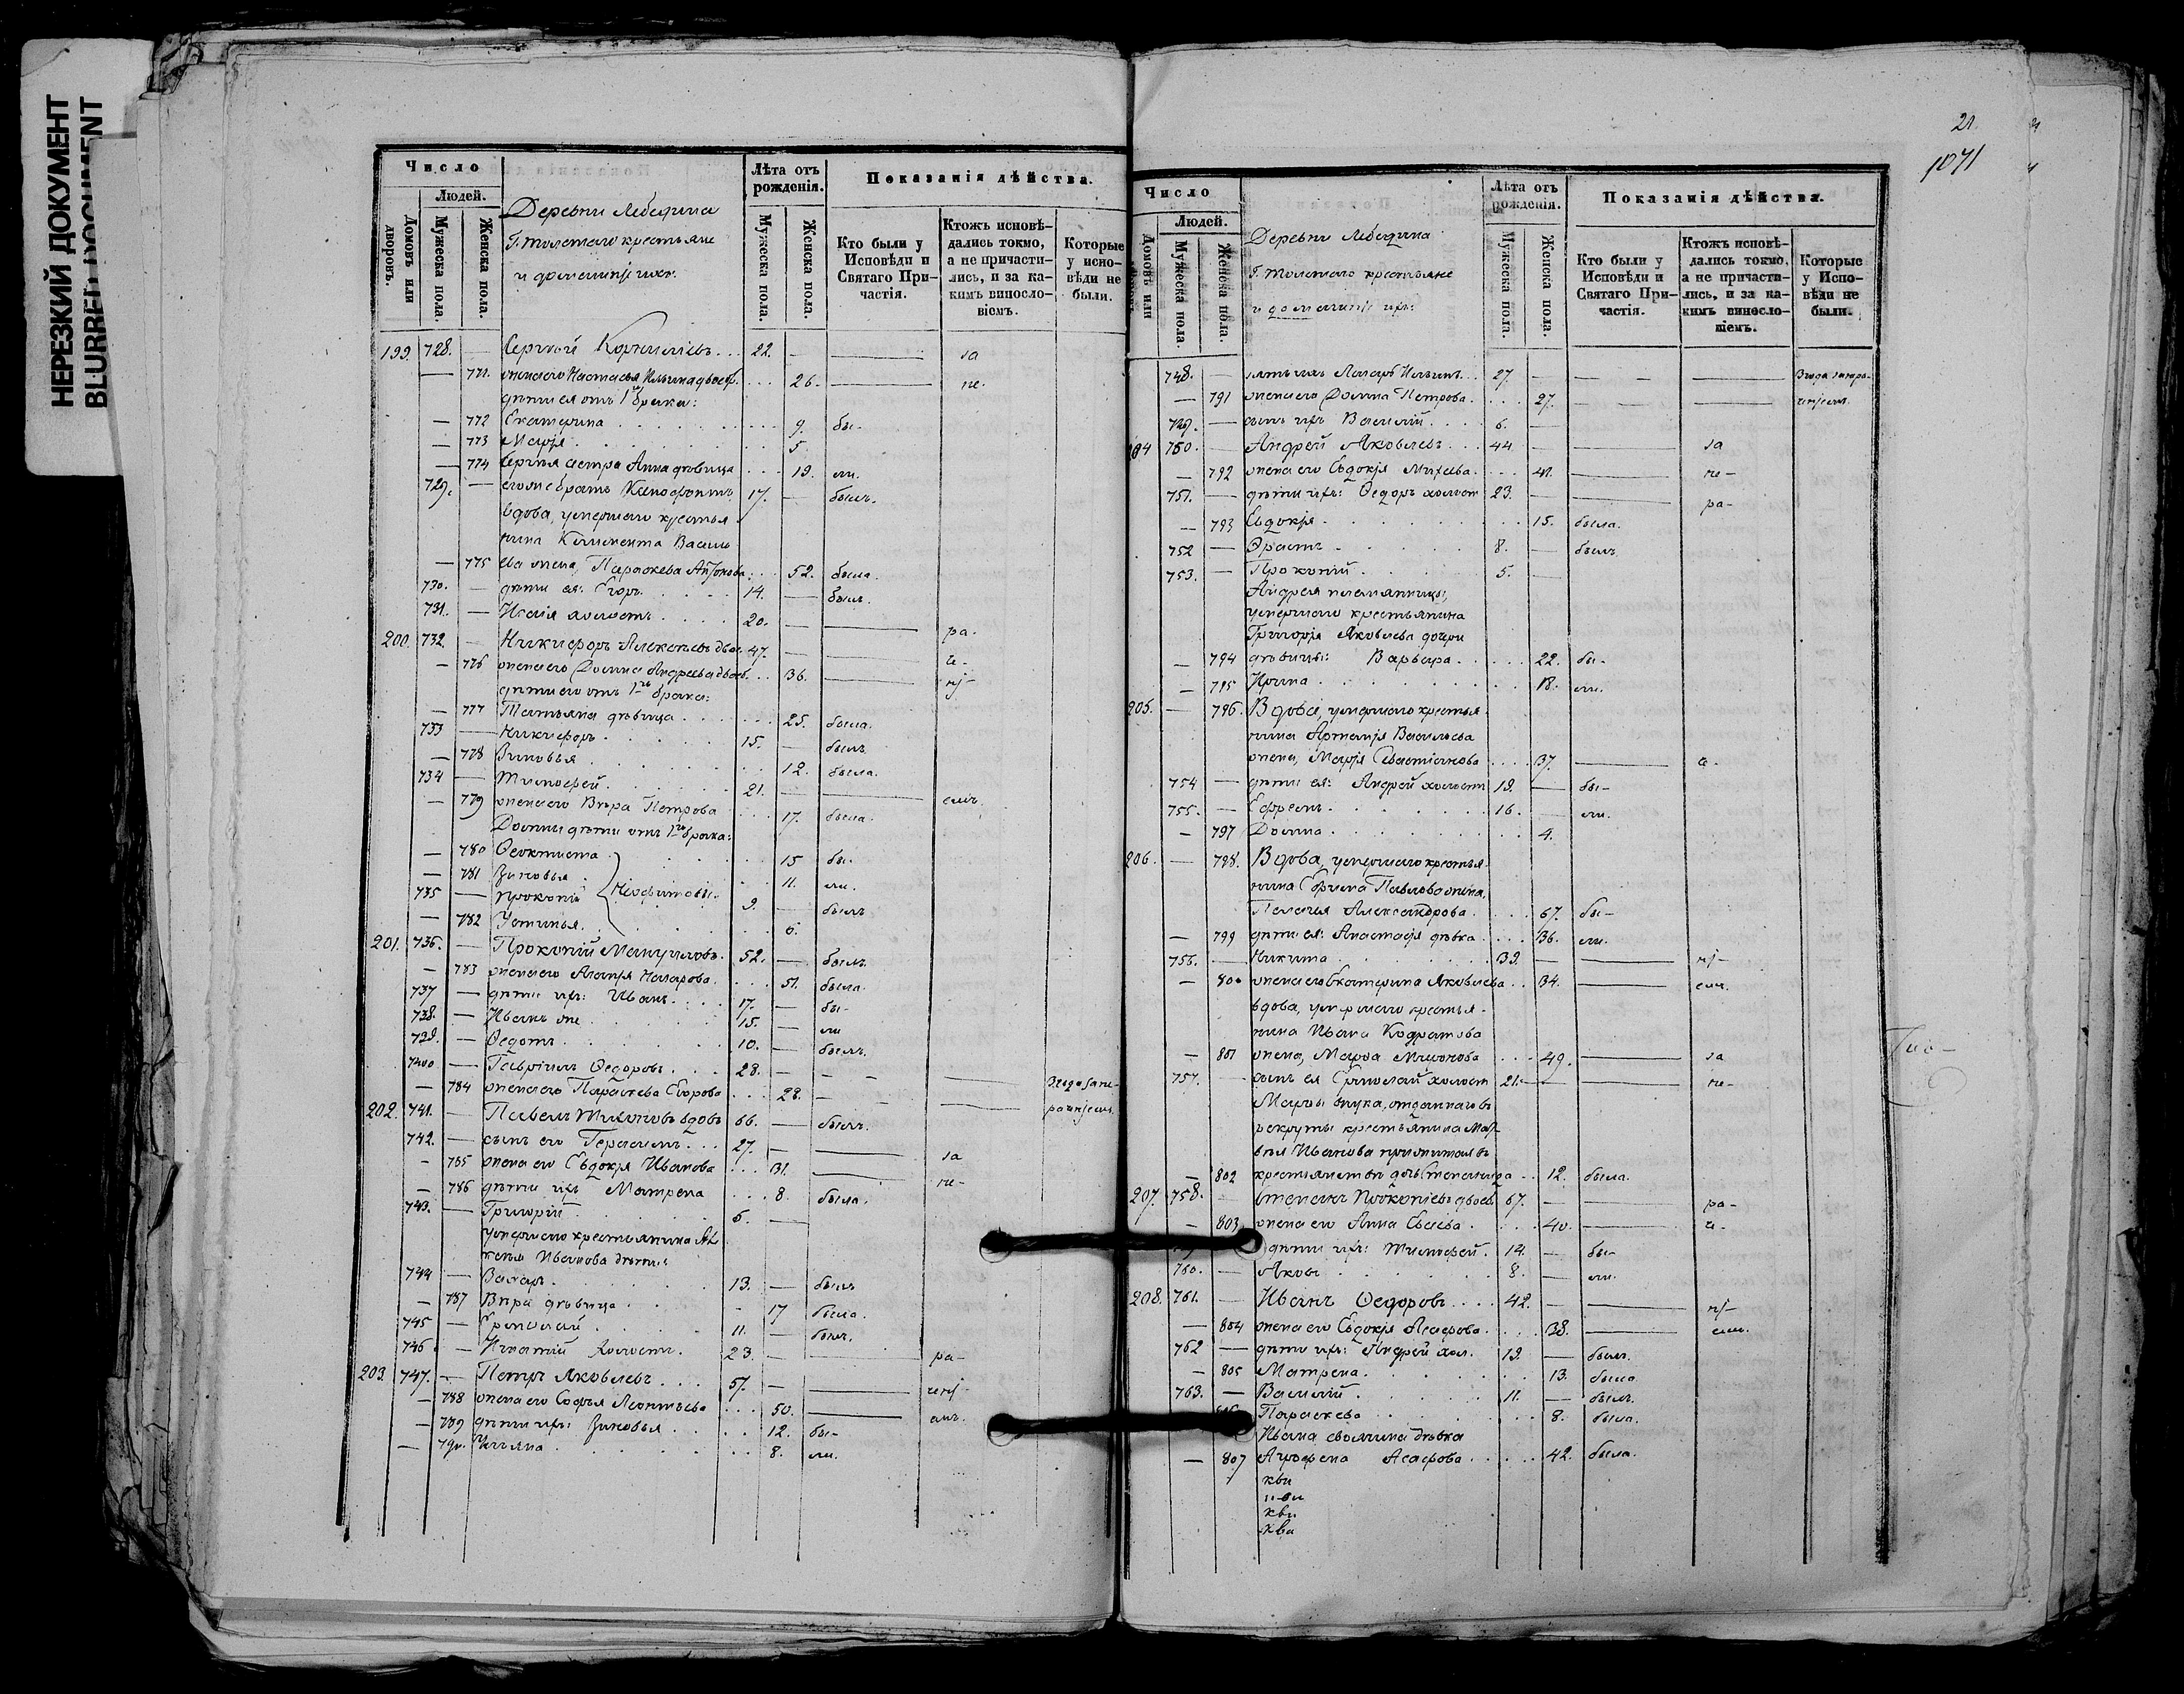 НЕРЕЗКИЙ ДОКУМЕНТ
BLURRED DOCUMENT
Число
Людей.
Домовъ или дворовъ.
Мужеска пола.
Женска пола.
Деревни Лебедина
Г. Толстаго крестьяне
и домашніи ихъ.
Лѣта отъ рожденія.
Мужеска пола.
Женска пола.
Показанія дѣйства.
Кто были у Исповѣди и Святаго Причастія.
Ктожъ исповѣдались токмо, а не причастились, и за какимъ винословіемъ.
Которые у исповѣди не были.
199. 728. — Сергѣй 22. — за
— 771. жена его Настасья 26. — не.
дѣти ея отъ 1го брака:
— 772 Екатерина 9. бы-
— 773 Марія 5.
— 774 Сергѣя сестра Анна дѣвица 19. ли.
729. — его же братъ Ксенофонтъ 17. — былъ.
вдова, умершаго крестья
нина Климента Василь
— 775 ева жена, Параскева 52. была.
730. — дѣти ея: Егоръ 14. — былъ.
731. — Исаія холостъ 20. — ра-
200. 732. — Никифоръ Алексѣевъ 47. — че-
— 776 жена его Домна Андреева 36. — нј-
дѣти его отъ 1го брака:
— 777 Татьяна дѣвица 25. была.
733 — Никифоръ 15. — былъ
— 778 Зиновья 12. была.
734 — Тимофей 21. — емъ.
— 779 жена его Вѣра Петрова 17. была.
Домны дѣти отъ 1го брака:
— 780 Феоктиста 15 бы-
— 781 Зиновья 11. ли.
735 — Прокопій 9. — былъ
— 782 Устинья 6.
201. 736. — Прокопій 52. — былъ.
— 783 жена его Агафія Назарова 51. была.
737 — дѣти ихъ: Иванъ 17. — бы-
738. — Иванъ же 15. — ли
739. — Ѳедотъ 10. — былъ.
740 — Гавріилъ Ѳедоровъ 28. —
— 784 жена его Параскева Егорова 28. —
202. 741. — Павелъ Тихоновъ вдовъ 66. — былъ.
742. — сынъ его Герасимъ 27. — за
— 785 жена его Евдокія Иванова 31. — не-
— 786 дѣти ихъ Матрена 8. была.
743. — Григорій 5. —
умершаго крестьянина Ал
ексѣя Иванова дѣти:
744 — Захаръ 13. — былъ
— 787 Вѣра дѣвица 17 была.
745 — Ермолай 11. — былъ.
746. — Игнатій холостъ. 23. — ра-
203. 747. — Петръ Яковлевъ 57. — ченј-
— 788 жена его Софья Леонтьева 50. — емъ.
— 789 дѣти ихъ: Зиновья 12. бы-
— 790. Ульяна 8. ли.
21.
1071
Число
Людей.
Домовъ или
Мужеска пола.
Женска пола.
Деревни Лебедина
Г. Толстаго крестьяне
и домашніи ихъ.
Лѣта отъ рожденія.
Мужеска пола.
Женска пола.
Показанія дѣйства.
Кто были у Исповѣди и Святаго Причастія.
Ктожъ исповѣдались токмо, а не причастились, и за какимъ винословіемъ.
Которые у Исповѣди не были.
748. — зять ихъ 27. —
— 791 жена его Домна Петрова 27. —
749. — сынъ ихъ Василій 6. —
204 750. — Андрей Яковлевъ 44 — за
— 792 жена его Евдокія 41. — не-
751. — дѣти ихъ: Ѳедоръ холост 23. — ра-
— 793 Евдокія 15. была.
752 — Эрастъ 8. — былъ
753. — Прокопій 5. —
Андрея племянницы,
умершаго крестьянина
Григорія Яковлева дочери
— 794 дѣвицы: Варвара 22. бы-
— 795 Ирина 18. ли.
205. — 796. Вдова, умершаго крестья
нина Артемія Васильева
жена, Марія Севастіанова 37. — че-
754 — дѣти ея: Андрей холостъ 19. — бы-
755. — Ефремъ 16. — ли.
— 797 Домна 4.
206. — 798. Вдова, умершаго крестья
нина Ефима Павлова жена,
Пелагея Александрова 67. бы-
— 799 дѣти ея: Анастасія дѣвка 36. ли.
756. — Никита 39. — нј-
— 800 жена его Екатерина Яковлева 34. — емъ.
вдова, умершаго крестья-
нина Ивана Кодратова
— 801 жена, Марѳа 49. — за
757. — сынъ ея Ермолай холост 21. — не-
Марѳы внука, отданнаго въ
рекруты крестьянина Мат
вѣя Иванова прижитая въ
— 802 крестьянствѣ дочь Степанида 12. была.
207. 758. — Степанъ Прокопіевъ двоеб. 67. — ра-
— 803 жена его Анна Евсева 40. — че-
дѣти ихъ: Тимофей 14. — бы-
760. — Яковъ 8. — ли.
208. 761. — Иванъ Ѳедоровъ 42. — нј-
— 804 жена его Евдокія Асафова 38. — емъ.
762 — дѣти ихъ: Андрей хол. 19. — былъ.
— 805 Матрена 13. была
763. — Василій 11. — былъ.
Параскева 8. была.
Ивана своячина дѣвка
— 807 Агрофена Асафова 42. была.